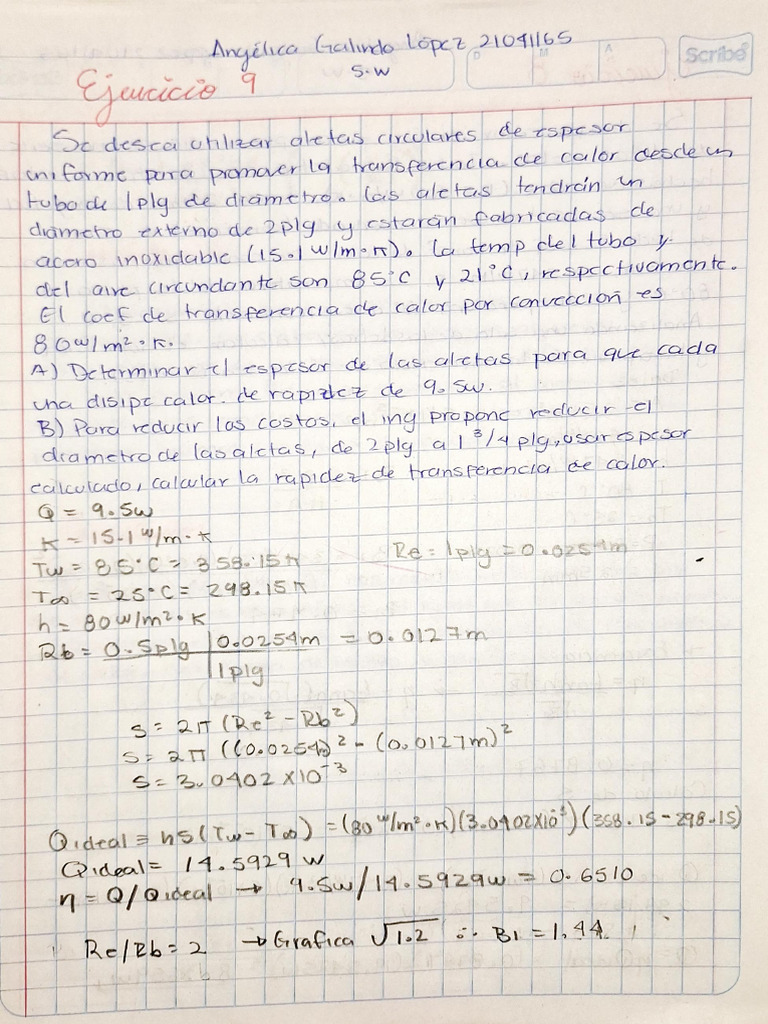 Angélica Galindo López 21041165
5-W
D M A
Scribe
Ejercicio 9
Se desea utilizar aletas circulares de espesor
uniforme para promover la transferencia de calor desde un
tubo de 1plg de diámetro. Las aletas tendrán un
diámetro externo de 2plg y estarán fabricadas de
acero inoxidable (15.1 w/m·K). La temp del tubo y
del aire circundante son 85°C y 21°C, respectivamente.
El coef de transferencia de calor por convección es
80 w/m²·K.
A) Determinar el espesor de las aletas para que cada
una disipe calor. de rapidez de 9.5w.
B) Para reducir los costos, el ing propone reducir el
diametro de las aletas, de 2plg a 1 3/4 plg, usar espesor
calculado, calcular la rapidez de transferencia de calor.
Q = 9.5w
K = 15.1 w/m·K
Tw = 85°C = 358.15K
Re = 1plg = 0.0254m
T∞ = 25°C = 298.15K
h = 80 w/m²·K
Rb = 0.5plg | 0.0254m = 0.0127m
1plg
s = 2π (Re² - Rb²)
s = 2π ((0.0254)² - (0.0127m)²
s = 3.0402 x10⁻³
Qideal = hs (Tw - T∞) = (80 w/m²·K)(3.0402x10⁻³)(358.15 - 298.15)
Qideal = 14.5929 w
η = Q/Qideal → 9.5w/14.5929w = 0.6510
Re/Rb = 2 → Grafica √1.2 ∴ Bi = 1.44